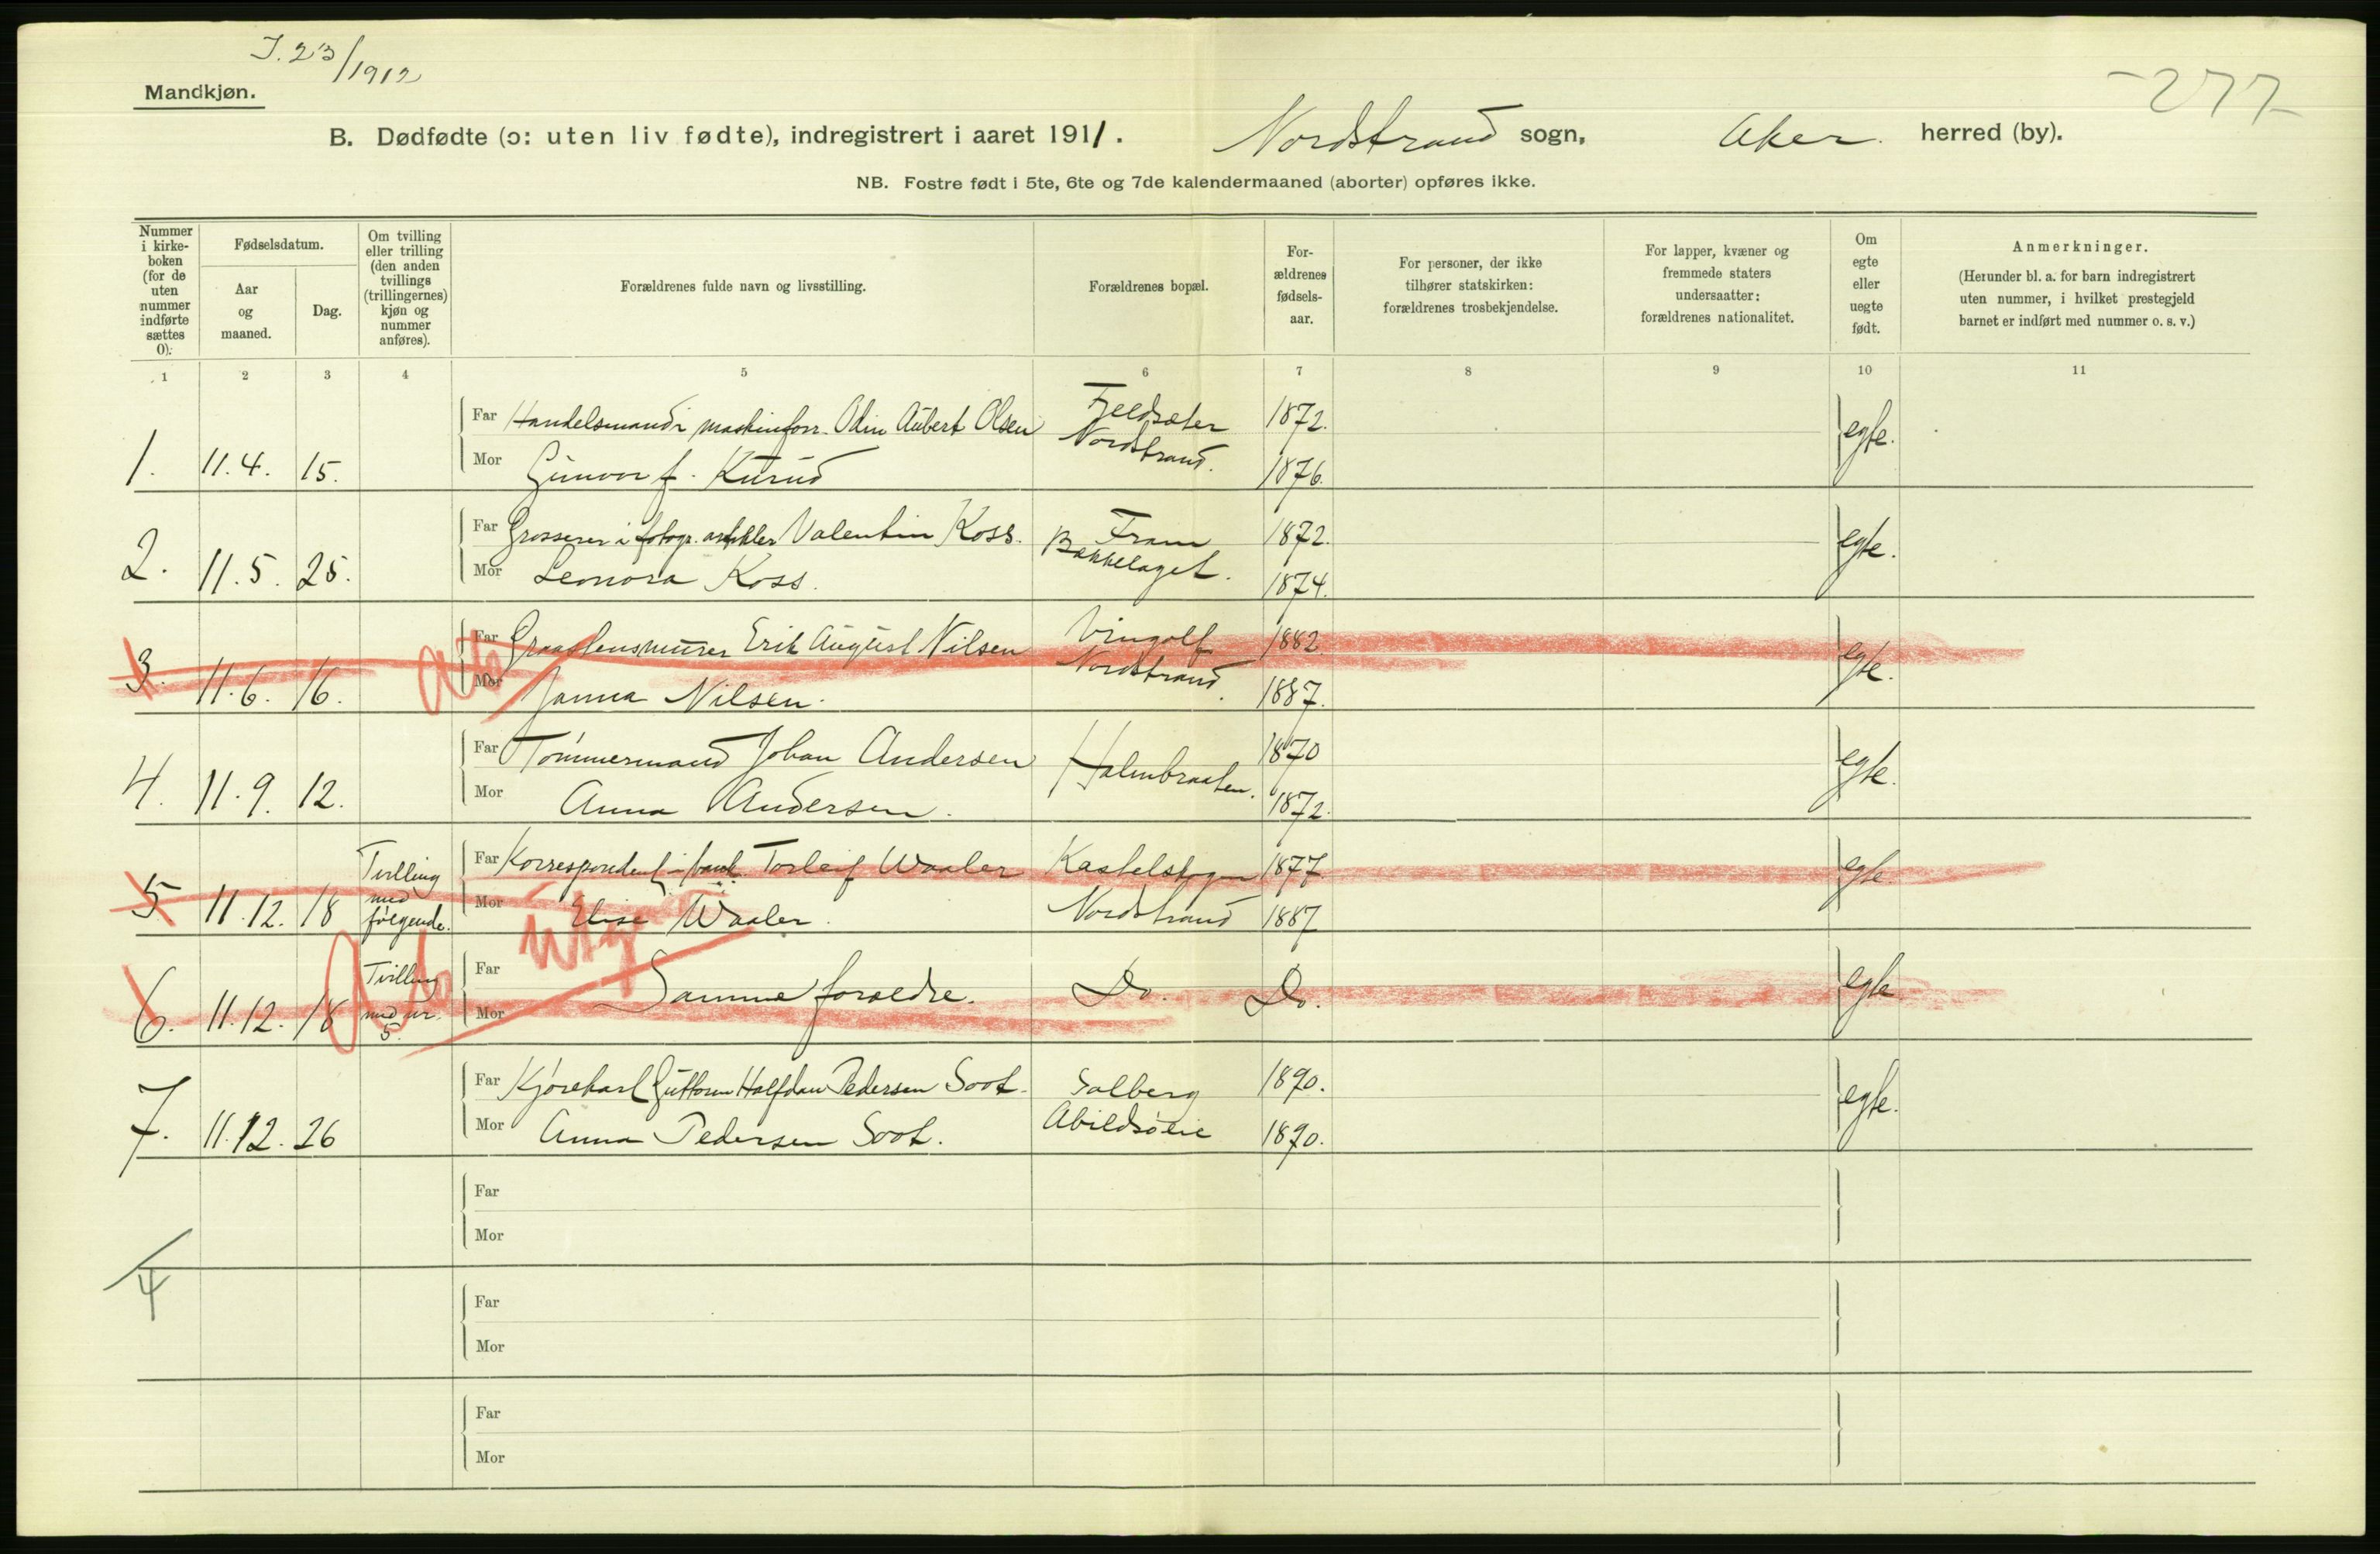 J. 23/1912
Mandkjøn.
277
B. Dødfødte (ɔ: uten liv fødte), indregistrert i aaret 1911. Nordstrand sogn, Aker. herred (by).
NB. Fostre født i 5te, 6te og 7de kalendermaaned (aborter) opføres ikke.
Nummer i kirke-boken (for de uten nummer indførte sættes 0):
Fødselsdatum.
Aar og maaned.
Dag.
Om tvilling eller trilling (den anden tvillings (trillingernes) kjøn og nummer anføres).
Forældrenes fulde navn og livsstilling.
Forældrenes bopæl.
For-ældrenes fødsels-aar.
For personer, der ikke tilhører statskirken: forældrenes trosbekjendelse.
For lapper, kvæner og fremmede staters undersaatter: forældrenes nationalitet.
Om egte eller uegte født.
Anmerkninger.
(Herunder bl. a. for barn indregistrert uten nummer, i hvilket prestegjeld barnet er indført med nummer o. s. v.)
1 2 3 4 5 6 7 8 9 10 11
Far Handelsmand i maskinforr. Odin Aubert Olsen Fjeldsæter 1872.
1. 11.4. 15. Mor Gunvor f. Kurud Nordstrand. 1876. egte.
Far Grosserer i fotogr. artikler Valentin Koss. Fram 1872.
2. 11.5. 25. Mor Leonora Koss. Bækkelaget. 1874. egte.
Far Graastensmurer Erik August Nilsen Vingolf 1882
3. 11.6. 16. Ab Mor Janna Nilsen. Nordstrand. 1887. egte.
Far Tømmermand Johan Andersen Holmbraaten. 1870
4. 11.9. 12. Mor Anna Andersen. 1872. egte.
Far Korrespondent i bank Torleif Waaler Kastelskogen 1877
5 11.12. 18 Tvilling med følgende. Mor Elise Waaler. Nordstrand 1887 egte.
Far
6. 11.12. 18 Tvilling med nr. 5. Ab Mor Samme forældre. Do. Do. egte
Far Kjørekarl Guttorm Halfdan Pedersen Soot. Solberg 1890.
7. 11.12. 26 Mor Anna Pedersen Soot. Abildsøeie 1890. egte.
Far
Mor
4
Far
Mor
Far
Mor